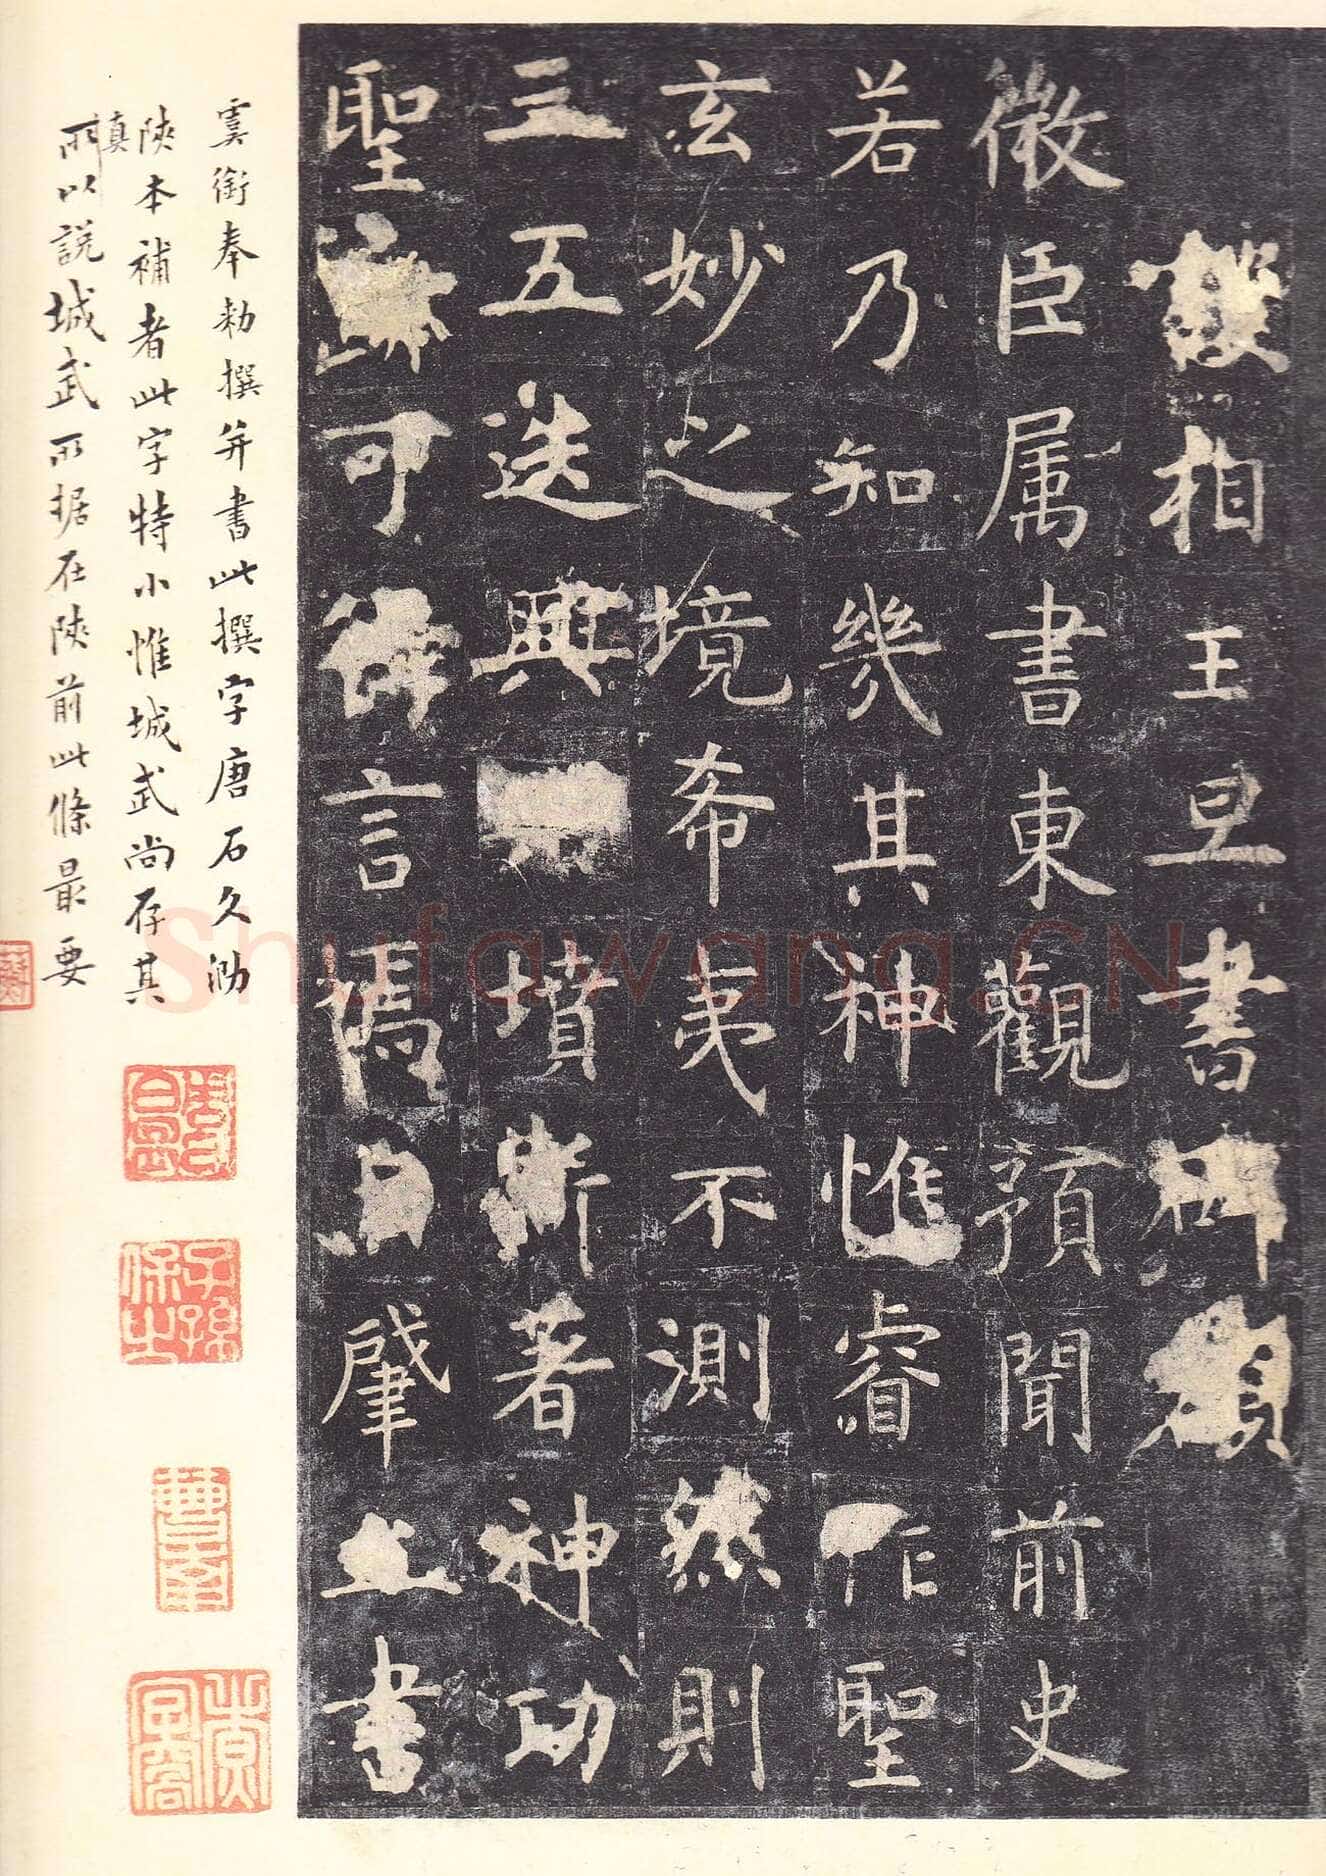 護相王旦書碑額
微臣属書東觀預聞前史
若乃知幾其神惟睿作聖
玄妙之境希夷不測然則
三五迭興墳斯著神功
聖跡可得言焉自肇立書
虞銜奉勅撰并書此撰字唐石久泐
陝本補者此字特小惟城武尚存其
真
所以說城武所據在陝前此條最要
子孫保之
Shufawang.CN